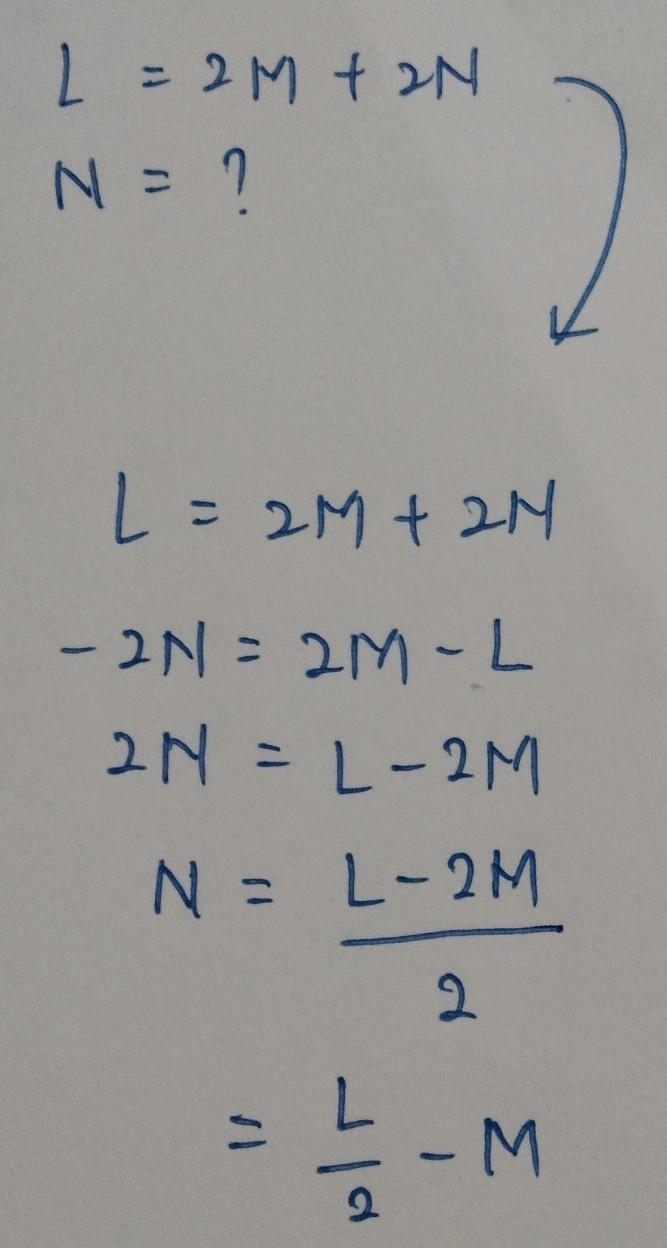 L = 2M + 2N
N = ?
L = 2M + 2N
- 2N = 2M - L
2N = L - 2M
N = L - 2M
2
= L
2 - M